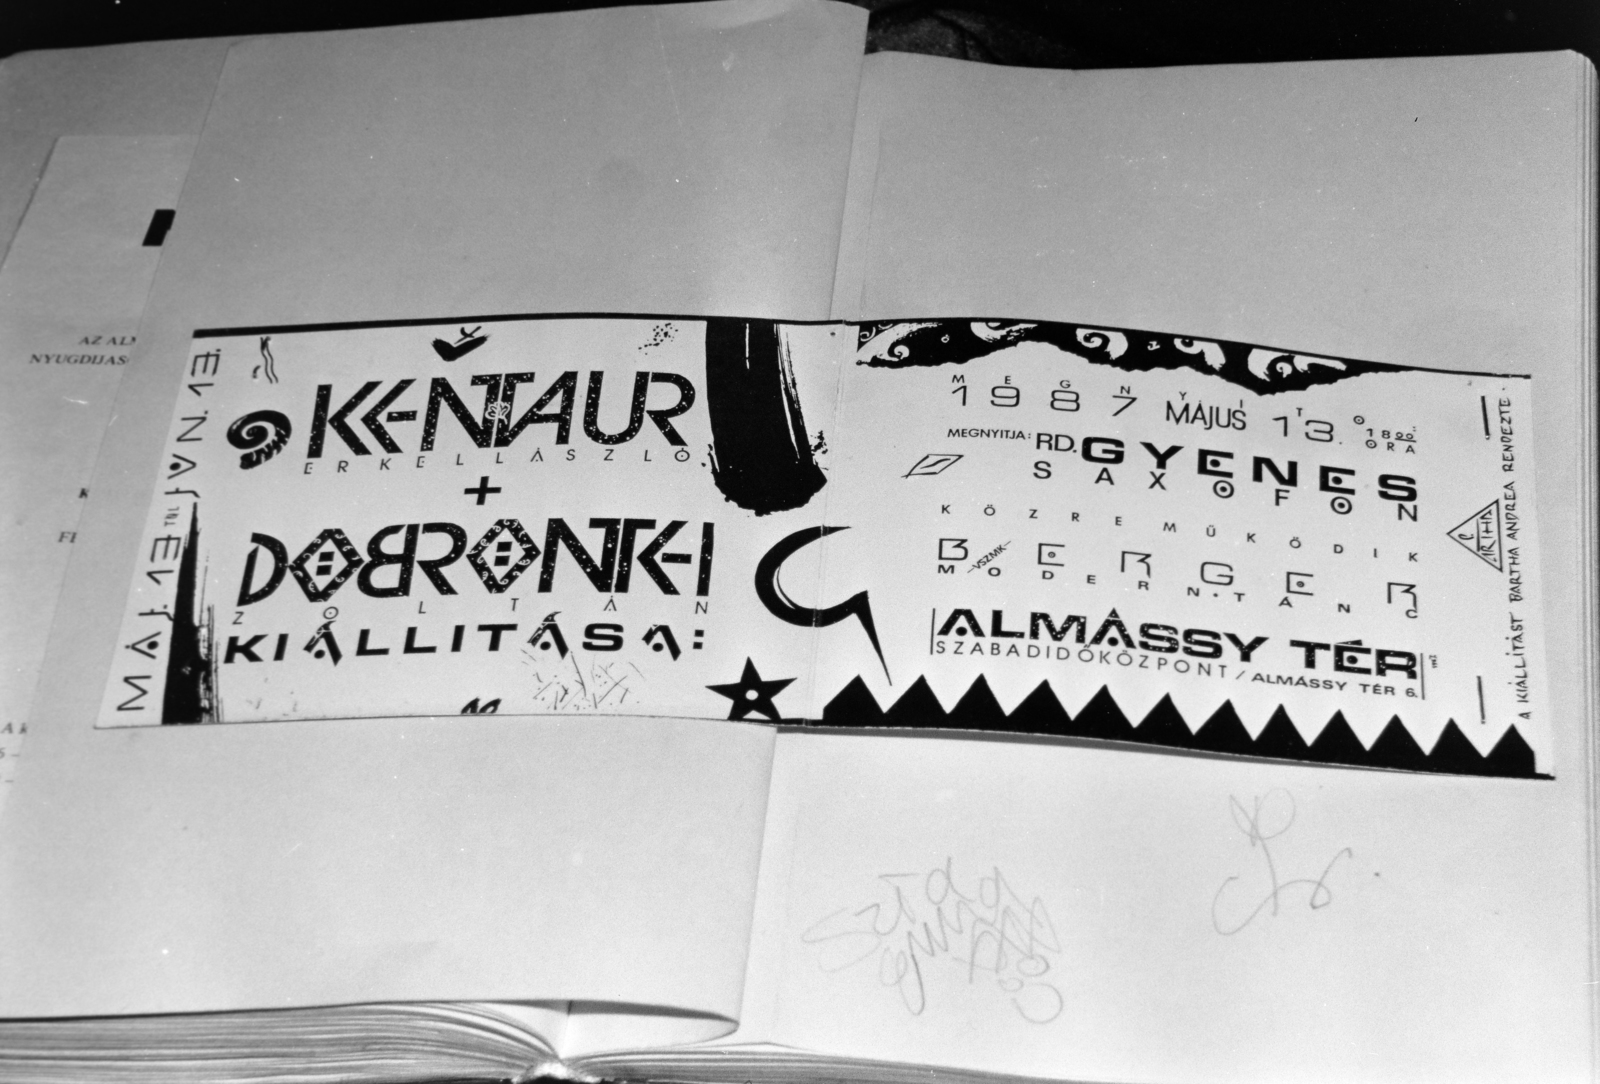 AZ AL
NYUGDIJAS
MÁJ. 13 TÓL JÚN. 1 É
KENTAUR
ERKEL LÁSZLÓ
+
DOBRONTEI
ZOLTÁN
KIÁLLITÁSA:
MEGNYÍTÓ
1987 MÁJUS 13. 18 00 ÓRA
MEGNYITJA: RD. GYENES
SAXOFON
KÖZREMŰKÖDIK
BERGER
–VSZMK–
MODERN·TÁNC
ALMÁSSY TÉR
SZABADIDŐKÖZPONT / ALMÁSSY TÉR 6.
A KIÁLLITÁST BARTHA ANDREA RENDEZTE.